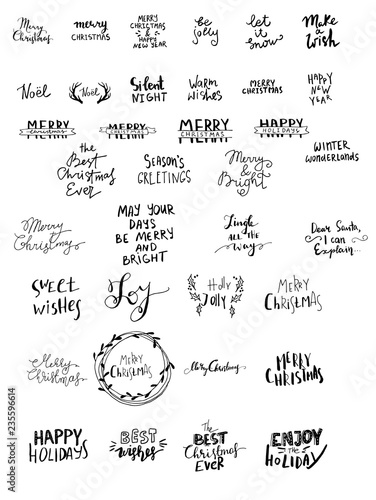 Merry
Christmas
merry
CHRISTMAS
MERRY
CHRISTMAS
&
HAPPY
NEW YEAR
be
jolly
let
it
snow
Make
a
Wish
Noël
Noël
Silent
NIGHT
Warm
wishes
MERRY
CHRISTMAS
HAPPY
NEW
YEAR
MERRY
christmas
MERRY
CHRISTMAS
MERRY
CHRISTMAS
HAPPY
HOLIDAYS
the
Best
Christmas
Ever
SEASON'S
GREETINGS
Merry
&
Bright
WINTER
wonderlands
Merry
Christmas
MAY YOUR
DAYS
BE MERRY
AND
BRIGHT
Jingle
ALL THE
Way
Dear Santa,
I can
Explain...
SWEET
wishes
Joy
Holly
JOLLY
MERRY
CHRISTMAS
Merry
Christmas
MERRY
CHRISTMAS
Merry Christmas
MERRY
CHRISTMAS
HAPPY
HOLIDAYS
BEST
wishes
The
BEST
Christmas
EVER
ENJOY
The
HOLIDAY
Adobe Stock | #235596614